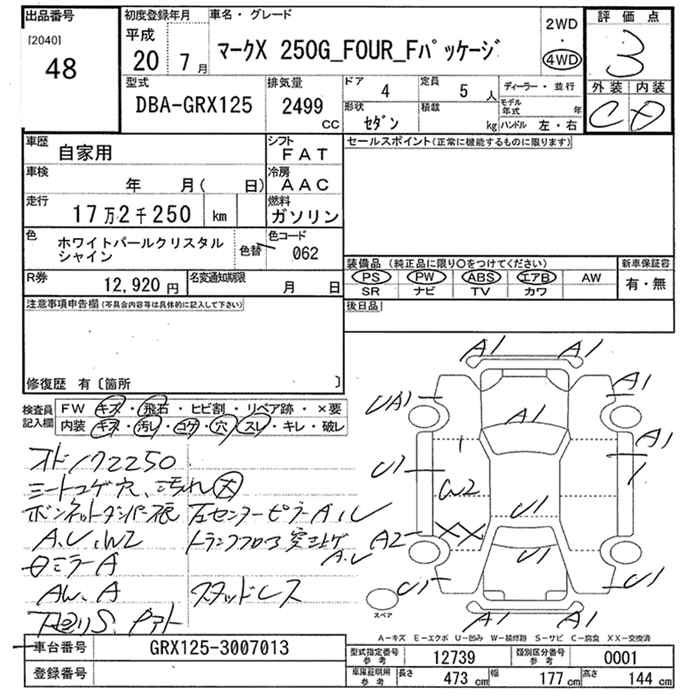 出品番号
[2040]
48
初度登録年月
平成
20 7月
車名・グレード
マークX 250G_FOUR_Fパッケージ
2WD
・
4WD
評価点
3
外装 内装
C D
型式
DBA-GRX125
排気量
2499
CC
ドア 4
定員 5 人
ディーラー・並行
モデル年式 年
形状
セダン
積載
kg
ハンドル 左・右
車歴
自家用
シフト
FAT
セールスポイント(正常に機能するものに限ります)
車検
年 月( 日)
冷房
AAC
走行
17万2千250 km
燃料
ガソリン
色
ホワイトパールクリスタル
シャイン
色替
色コード
062
装備品 (純正品に限り○をつけてください)
新車保証書
PS PW ABS エアB AW
有・無
SR ナビ TV カワ
R券
12,920 円
名変通知期限
月 日
後日品
注意事項申告欄(写真会内容等は具体的に記入して下さい)
修復歴 有〔箇所 〕
検査員
記入欄
FW キズ・飛石・ヒビ割・リペア跡・×要
内装 キズ・汚レ・コゲ・穴・スレ・キレ・破レ
オドノ172250
シートコゲ穴、汚れ大
A.U.W2
ミラーA
AW.A
スタッドレス
下廻りS.
A1
A1
A1
A1
UA1
A1
A1
U1
1
W2
U1
XX
A2
U1
U1
U1
A1
A1
スペア
A-キズ E-エクボ U-凹み W-補修跡 S-サビ C-腐食 XX-交換済
車台番号
GRX125-3007013
登録番号
型式指定番号
参考
12739
類別区分番号
参考
0001
車庫証明用
参考
長さ 473 cm 幅 177 cm 高さ 144 cm